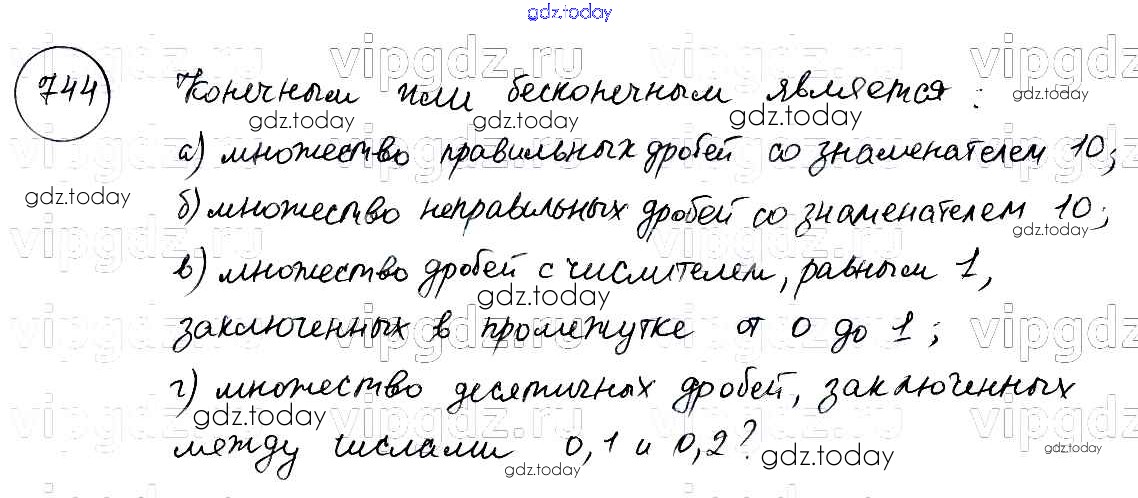 gdz.today
744
Конечным или бесконечным является:
а) множество правильных дробей со знаменателем 10;
б) множество неправильных дробей со знаменателем 10;
в) множество дробей с числителем, равным 1,
заключенных в промежутке от 0 до 1;
г) множество десятичных дробей, заключенных
между числами 0,1 и 0,2?